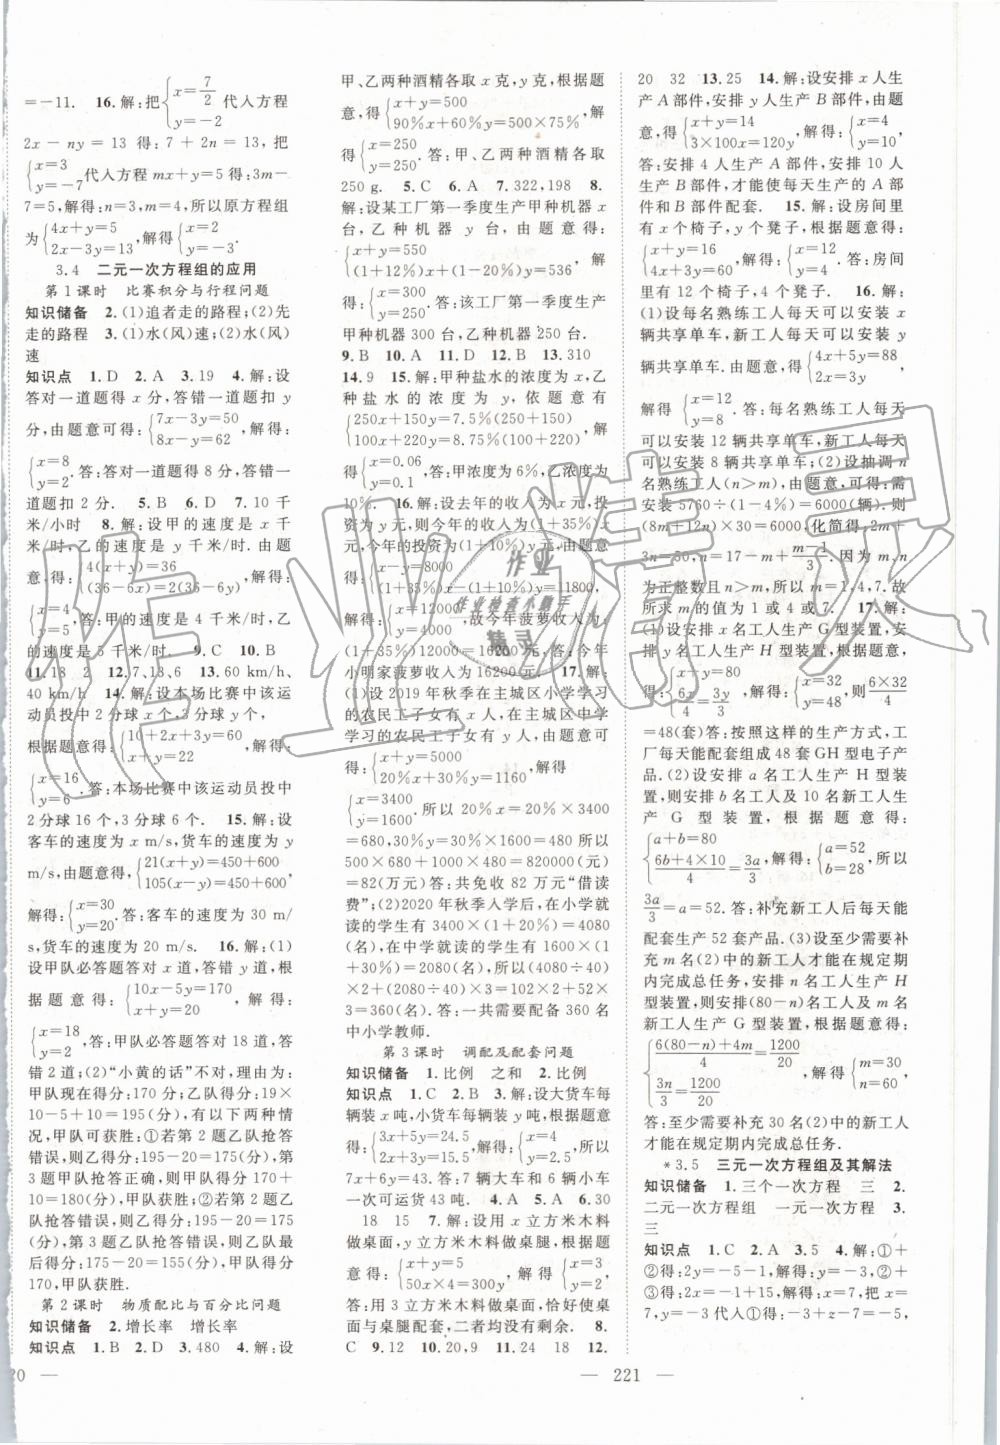 =-11. 16.解:把{x=7/2 y=-2 代入方程
2x-ny=13 得:7+2n=13,把
{x=3 y=-7 代入方程 mx+y=5 得:3m-
7=5,解得:n=3,m=4,所以原方程组
为{4x+y=5 2x-3y=13,解得{x=2 y=-3.
3.4 二元一次方程组的应用
第1课时 比赛积分与行程问题
知识储备 2.(1)追者走的路程;(2)先
走的路程 3.(1)水(风)速;(2)水(风)
速
知识点 1.D 2.A 3.19 4.解:设
答对一道题得 x 分,答错一道题扣 y
分,由题意可得:{7x-3y=50 8x-2y=62,解得:
{x=8 y=2.答:答对一道题得8分,答错一
道题扣2分. 5.B 6.D 7.10千
米/小时 8.解:设甲的速度是 x 千
米/时,乙的速度是 y 千米/时.由题
意,得:{4(x+y)=36 (36-6x)=2(36-6y),解得:
{x=4 y=5.答:甲的速度是4千米/时,乙
的速度是5千米/时. 9.C 10.B
11.18 2 12.7,18,6 13.60 km/h,
40 km/h 14.解:设本场比赛中该运
动员投中2分球 x 个,3分球 y 个.
根据题意得:{10+2x+3y=60 x+y=22,解得:
{x=16 y=6.答:本场比赛中该运动员投中
2分球16个,3分球6个. 15.解:设
客车的速度为 x m/s,货车的速度为 y
m/s,由题意得{21(x+y)=450+600 105(x-y)=450+600,
解得:{x=30 y=20.答:客车的速度为30 m/
s,货车的速度为20 m/s. 16.解:(1)
设甲队必答题答对 x 道,答错 y 道,根
据题意得:{10x-5y=170 x+y=20,解得:
{x=18 y=2,答:甲队必答题答对18道,答
错2道;(2)“小黄的话”不对,理由为:
甲队现在得分:170分;乙队得分:19×
10-5+10-5=195(分),有以下两种情
况,甲队可获胜:①若第2题乙队抢答
错误,则乙得分:195-20=175(分),第
3题甲队抢答正确,则甲队得分:170+
10=180(分),甲队获胜;②若第2题乙
队抢答错误,则乙得分:195-20=175
(分),第3题乙队又抢答错误,则乙队
得分:175-20=155(分),甲队得分
170,甲队获胜.
第2课时 物质配比与百分比问题
知识储备 2.增长率 增长率
知识点 1.B 2.D 3.480 4.解:设
20 —
甲、乙两种酒精各取 x 克,y 克,根据题
意,得{x+y=500 90%x+60%y=500×75%,解
得{x=250 y=250.答:甲、乙两种酒精各取
250 g. 5.C 6.A 7.322,198 8.
解:设某工厂第一季度生产甲种机器 x
台,乙种机器 y 台,由题意得:
{x+y=550 (1+12%)x+(1+10%)y=536,解得:
{x=300 y=250.答:该工厂第一季度生产
甲种机器300台,乙种机器250台.
9.B 10.A 11.D 12.B 13.310
14.9 15.解:甲种盐水的浓度为 x,乙
种盐水的浓度为 y,依题意有
{250x+150y=7.5%(250+150) 100x+220y=8.75%(100+220),解得
{x=0.06 y=0.1.答:甲浓度为6%,乙浓度为
10%. 16.解:设去年的收入为 x 元,投
资为 y 元,则今年的收入为(1+35%)x
元,今年的投资为(1+10%)y元,根据题
意得:{x-y=8000 (1+35%)x-(1+10%)y=11800,解
得:{x=12000 y=4000,故今年菠萝收入为
(1+35%)12000=16200 元,答:今年
小明家菠萝收入为16200元. 17.解:
(1)设2019年秋季在主城区小学学习
的农民工子女有 x 人,在主城区中学
学习的农民工子女有 y 人,由题意可
得:{x+y=5000 20%x+30%y=1160,解得
{x=3400 y=1600.所以20%x=20%×3400
=680,30%y=30%×1600=480 所以
500×680+1000×480=820000(元)
=82(万元)答:共免收82万元“借读
费”;(2)2020年秋季入学后,在小学就
读的学生有3400×(1+20%)=4080
(名),在中学就读的学生有1600×(1
+30%)=2080(名),所以(4080÷40)
×2+(2080÷40)×3=102×2+52×3
=360(名).答:一共需要配备360名
中小学教师.
第3课时 调配及配套问题
知识储备 1.比例 之和 2.比例
知识点 1.C 2.B 3.解:设大货车每
辆装 x 吨,小货车每辆装 y 吨,根据题意
得:{3x+5y=24.5 2x+3y=15.5,解得:{x=4 y=2.5,所以
7x+6y=43.答:7辆大车和6辆小车
一次可运货43吨. 4.A 5.A 6.30
18 15 7.解:设用 x 立方米木料
做桌面,y 立方米木料做桌腿,根据题
意得:{x+y=5 50x×4=300y,解得:{x=3 y=2,
答:用3立方米木料做桌面,恰好桌面
与桌腿配套,二者均没有剩余. 8.
C 9.12 10.20,9 11.24 18 12.
— 221 —
20 32 13.25 14.解:设安排 x 人生
产 A 部件,安排 y 人生产 B 部件,由题
意,得{x+y=14 3×100x=120y,解得:{x=4 y=10,
答:安排4人生产 A 部件,安排10人生
产 B 部件,才能使每天生产的 A 部
件和 B 部件配套. 15.解:设房间里
有 x 个椅子,y 个凳子,根据题意得:
{x+y=16 4x+3y=60,解得:{x=12 y=4.答:房间
里有12个椅子,4个凳子. 16.解:
(1)设每名熟练工人每天可以安装 x
辆共享单车,新工人每天可以安装 y
辆共享单车.由题意得{4x+5y=88 2x=3y,
解得{x=12 y=8.答:每名熟练工人每天
可以安装12辆共享单车,新工人每天
可以安装8辆共享单车;(2)设抽调 n
名熟练工人(n>m),由题意,可能得:需
安装5760÷(1-4%)=6000(辆),则
(8m+12n)×30=6000,化简得:2m+
3n=50,n=17-m+(m-1)/3.因为 m,n
为正整数且 n>m,所以 m=1,4,7.故
所求 m 的值为1或4或7. 17.解:
(1)设安排 x 名工人生产 G 型装置,安
排 y 名工人生产 H 型装置,根据题意
得:{x+y=80 6x/4=3y/3,解得:{x=32 y=48,则(6×32)/4
=48(套)答:按照这样的生产方式,工
厂每天能配套组成48套GH型电子产
品.(2)设安排 a 名工人生产 H 型装
置,安排 b 名工人及10名新工人生产
G 型装置,根据题意得:
{a+b=80 (6b+4×10)/4=3a/3,解得:{a=52 b=28,所以
3a/3=a=52.答:补充新工人后每天能
配套生产52套产品.(3)设至少需要补
充 m 名(2)中的新工人才能在规定期
内完成总任务,安排 n 名工人生产 H
型装置,则安排(80-n)名工人及 m 名
新工人生产 G 型装置,根据题意得:
{(6(80-n)+4m)/4=1200/20 3n/3=1200/20,解得:{m=30 n=60,
答:至少需要补充30名(2)中的新工人
才能在规定期内完成总任务.
*3.5 三元一次方程组及其解法
知识储备 1.三个一次方程 三 2.
二元一次方程组 一元一次方程 3.
三
知识点 1.C 2.A 3.5 4.解:①+
②得:2y=-5-1,解得:y=-3.②+
③得:2x=14,解得:x=7,把 x=
7,y=-3代入①得:-3+z-7=-5,